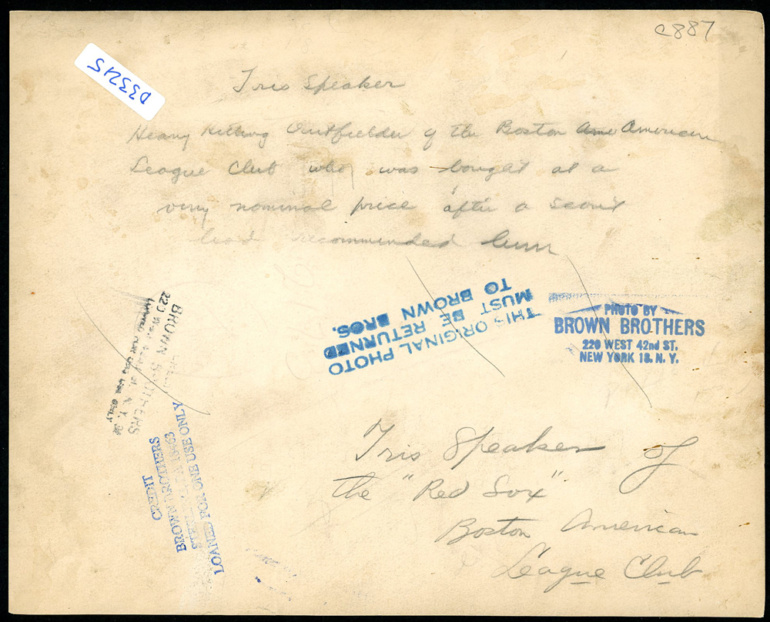 c887
D33245
Tris Speaker
Heavy Hitting Outfielder of the Boston Ame American
League Club who was bought at a
very nominal price after a scout
had recommended him
THIS ORIGINAL PHOTO
MUST BE RETURNED
TO BROWN BROS.
PHOTO BY
BROWN BROTHERS
220 WEST 42nd ST.
NEW YORK 18. N. Y.
BROWN BROTHERS
220
CREDIT
BROWN BROTHERS
LOANED FOR ONE USE ONLY
Tris Speaker of
the "Red Sox"
Boston American
League Club